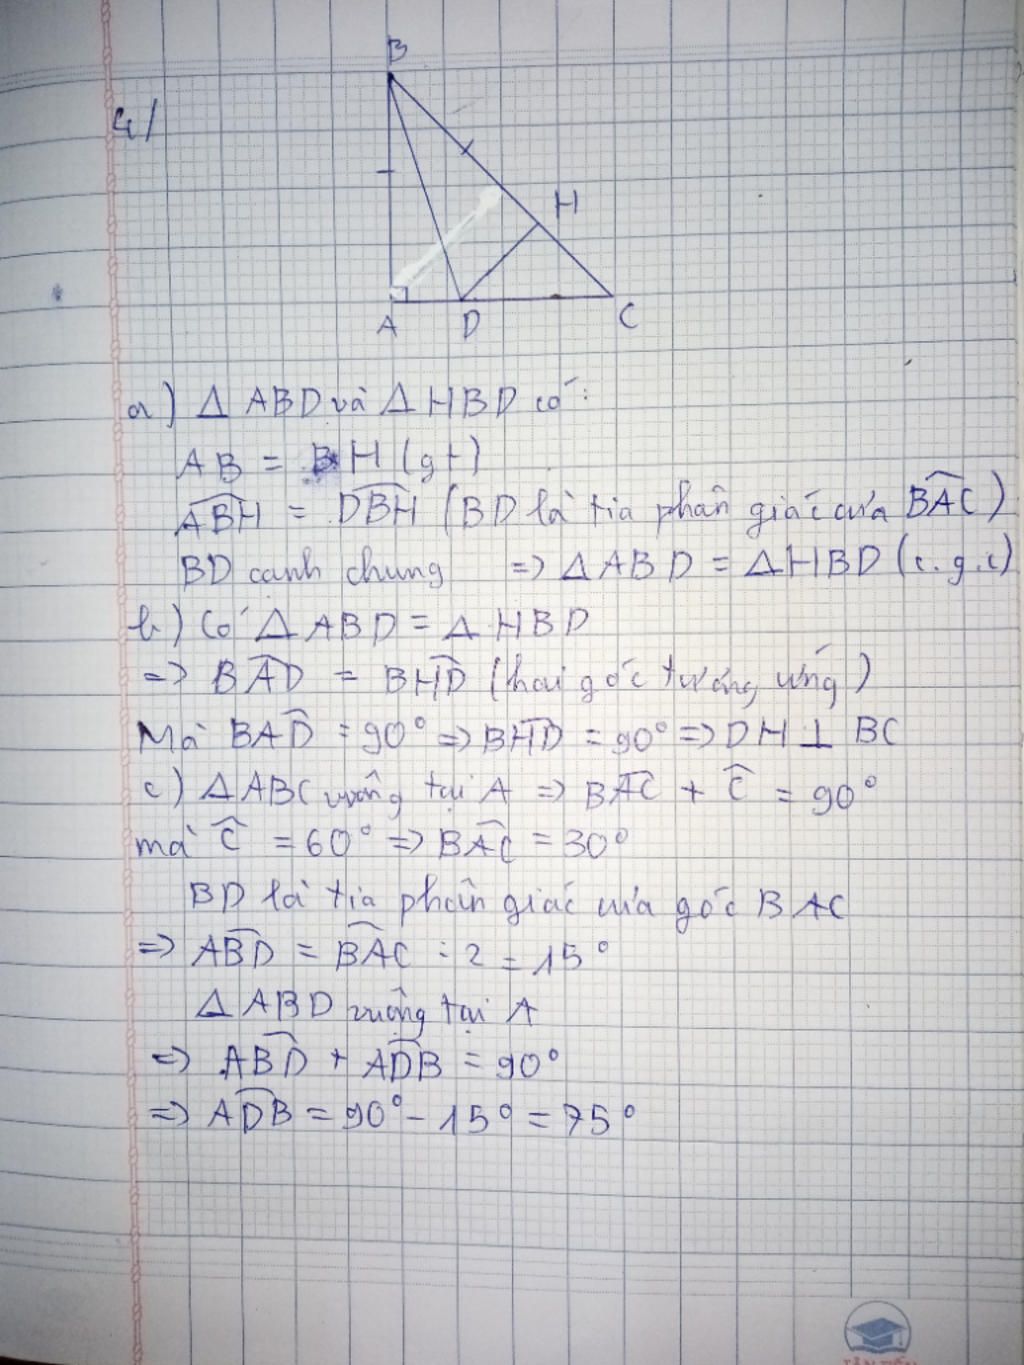 4/
B
H
A
D
C
a) Δ ABD và Δ HBD có :
AB = BH (gt)
ABH = DBH (BD là tia phân giác của BAC)
BD cạnh chung => Δ ABD = Δ HBD (c.g.c)
b) Có Δ ABD = Δ HBD
=> BAD = BHD (hai góc tương ứng)
Mà BAD = 90° => BHD = 90° => DH ⊥ BC
c) Δ ABC vuông tại A => BAC + C = 90°
mà C = 60° => BAC = 30°
BD là tia phân giác của góc BAC
=> ABD = BAC : 2 = 15°
Δ ABD vuông tại A
=> ABD + ADB = 90°
=> ADB = 90° - 15° = 75°